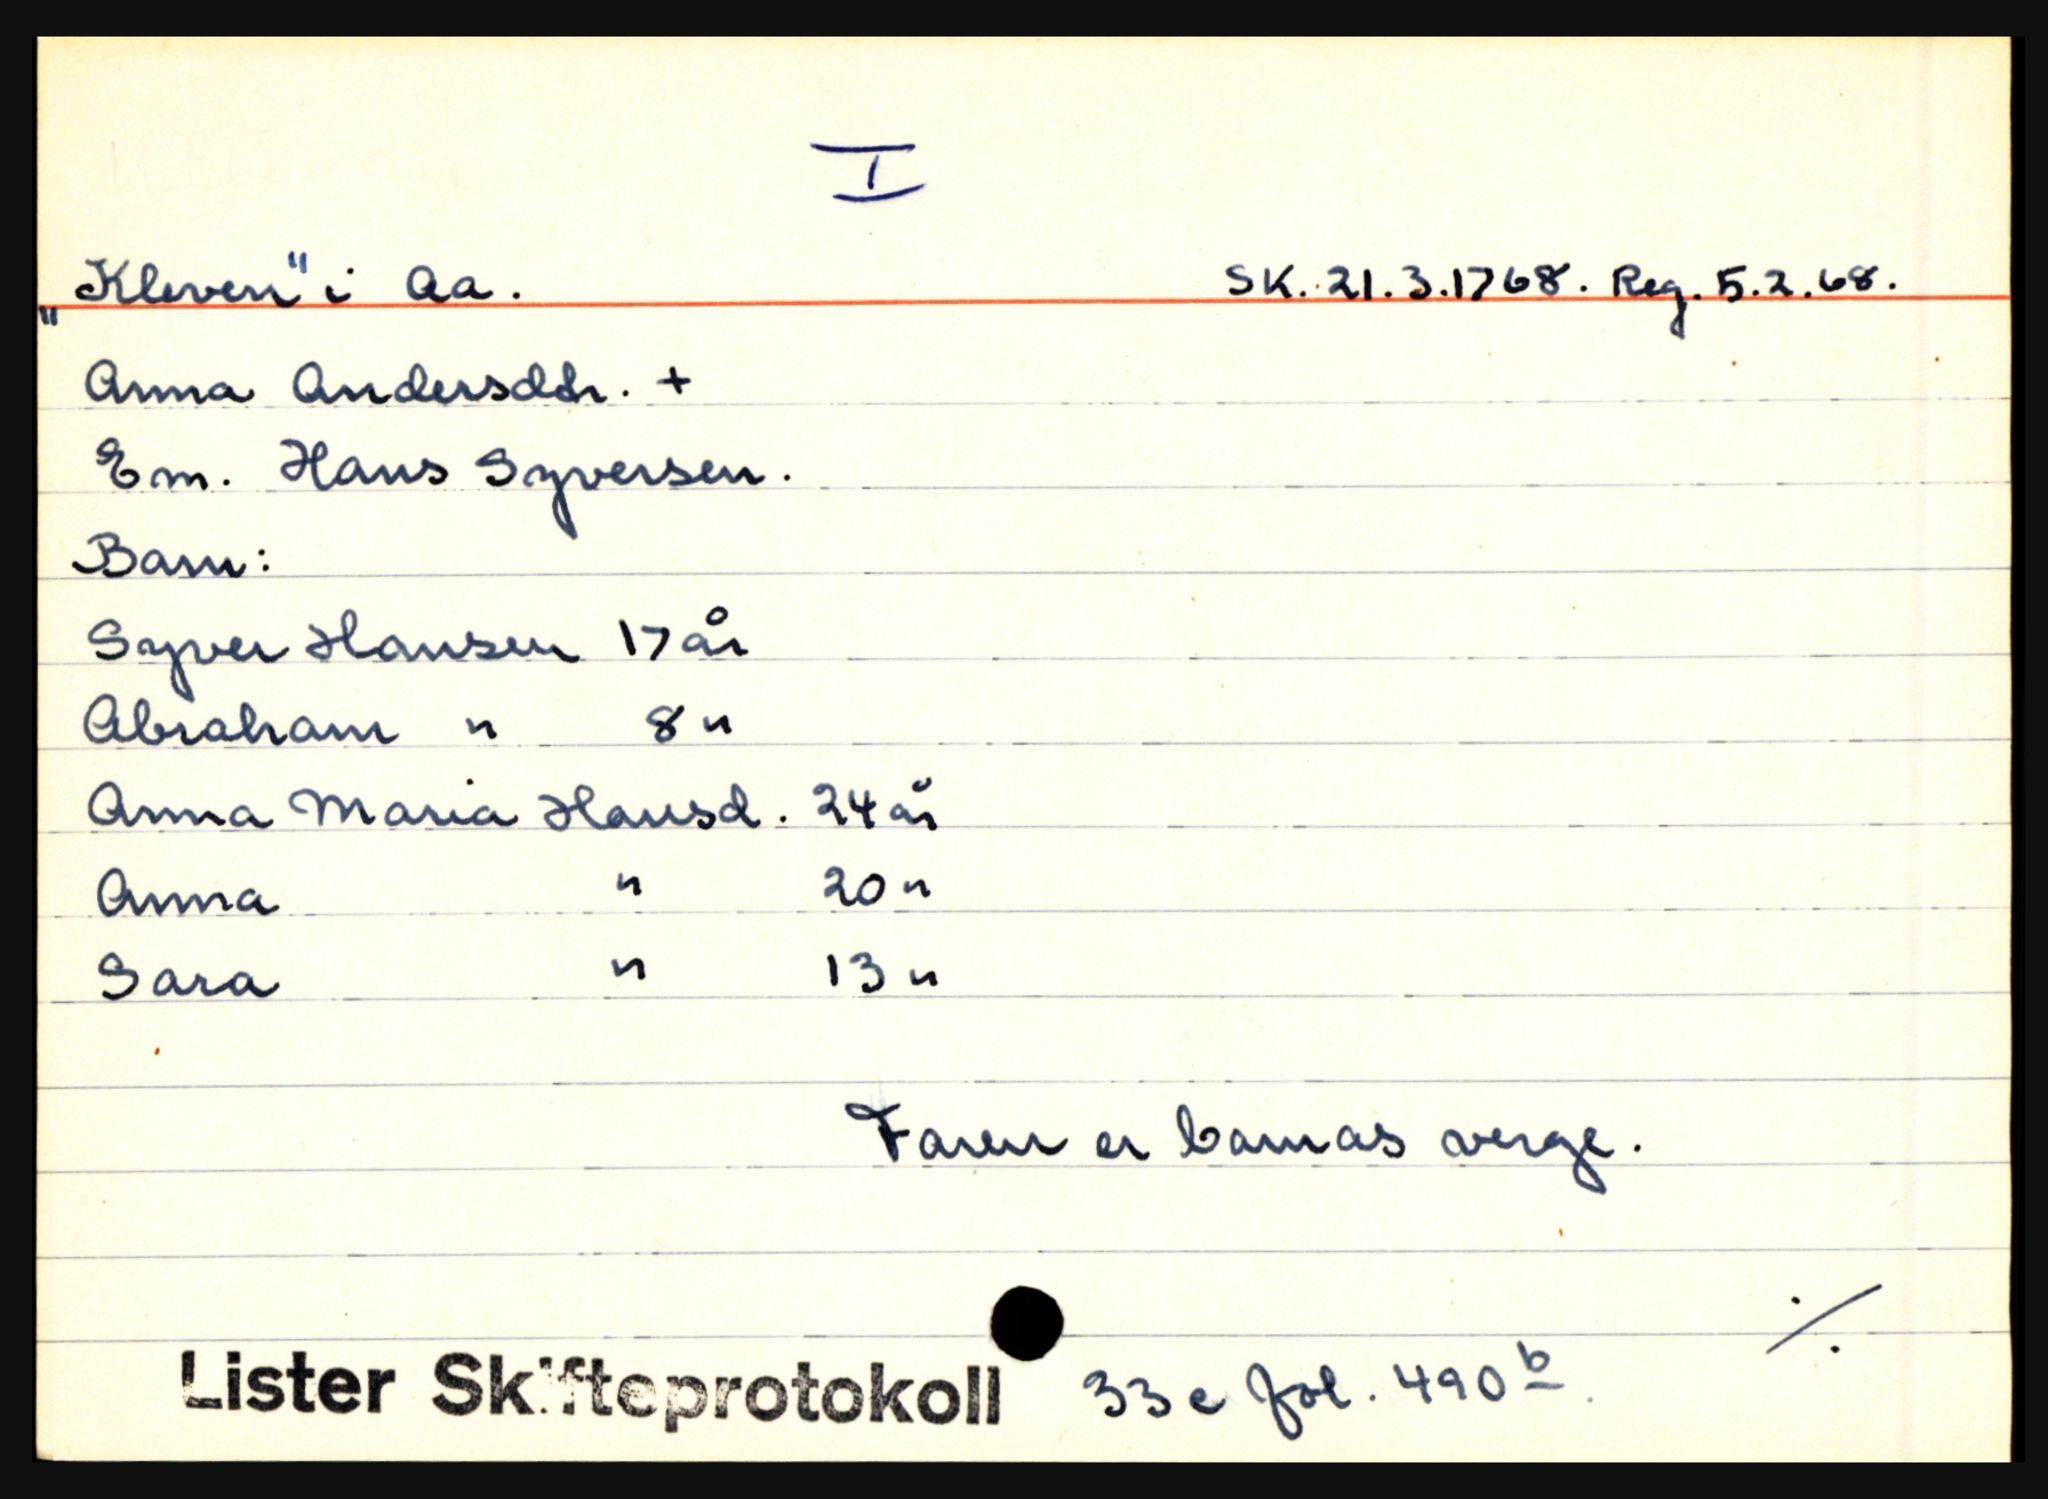 I
"Kleven" i Aa. SK. 21.3.1768. Reg. 5.2.68.
Anna Andersdtr. +
Em. Hans Syversen.
Barn:
Syver Hansen 17 år
Abraham " 8 "
Anna Maria Hansd. 24 år
Anna " 20 "
Sara " 13 "
Faren er barnas verge.
./.
Lister Skifteprotokoll 33 c fol. 490 b.